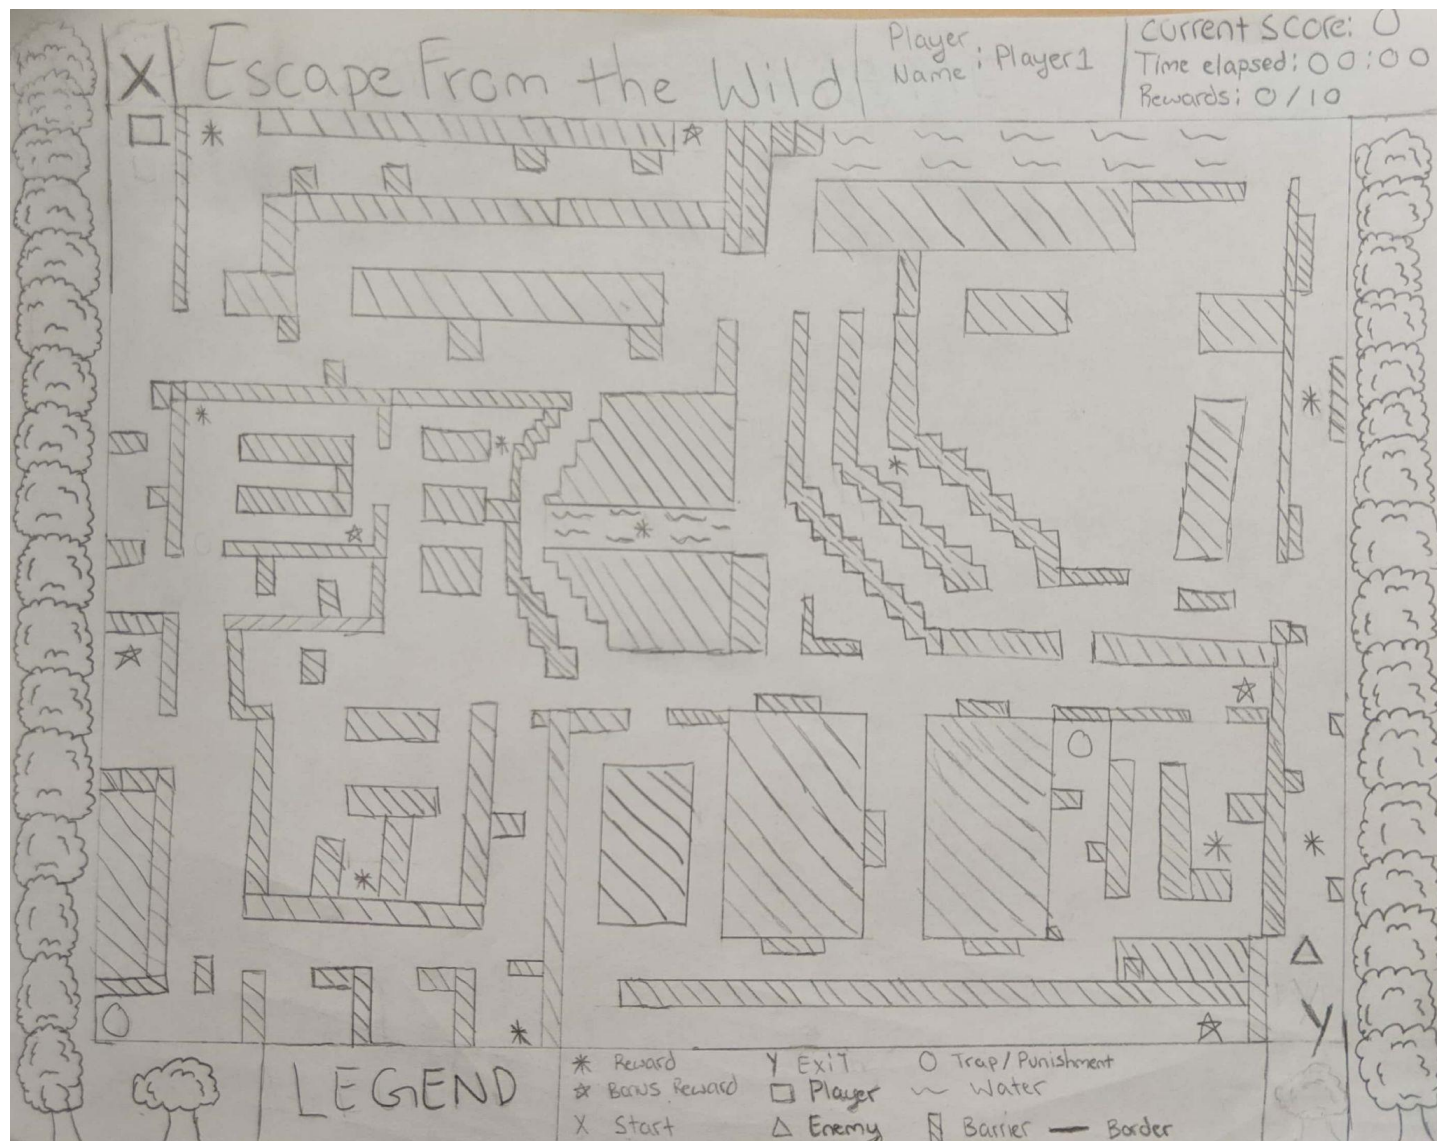 X Escape From the Wild
Player Name : Player 1
Current Score: 0
Time elapsed: 00:00
Rewards: 0/10
Y
LEGEND
Reward
Bonus Reward
X Start
Y Exit
Player
Enemy
Trap/Punishment
Water
Barrier
Border